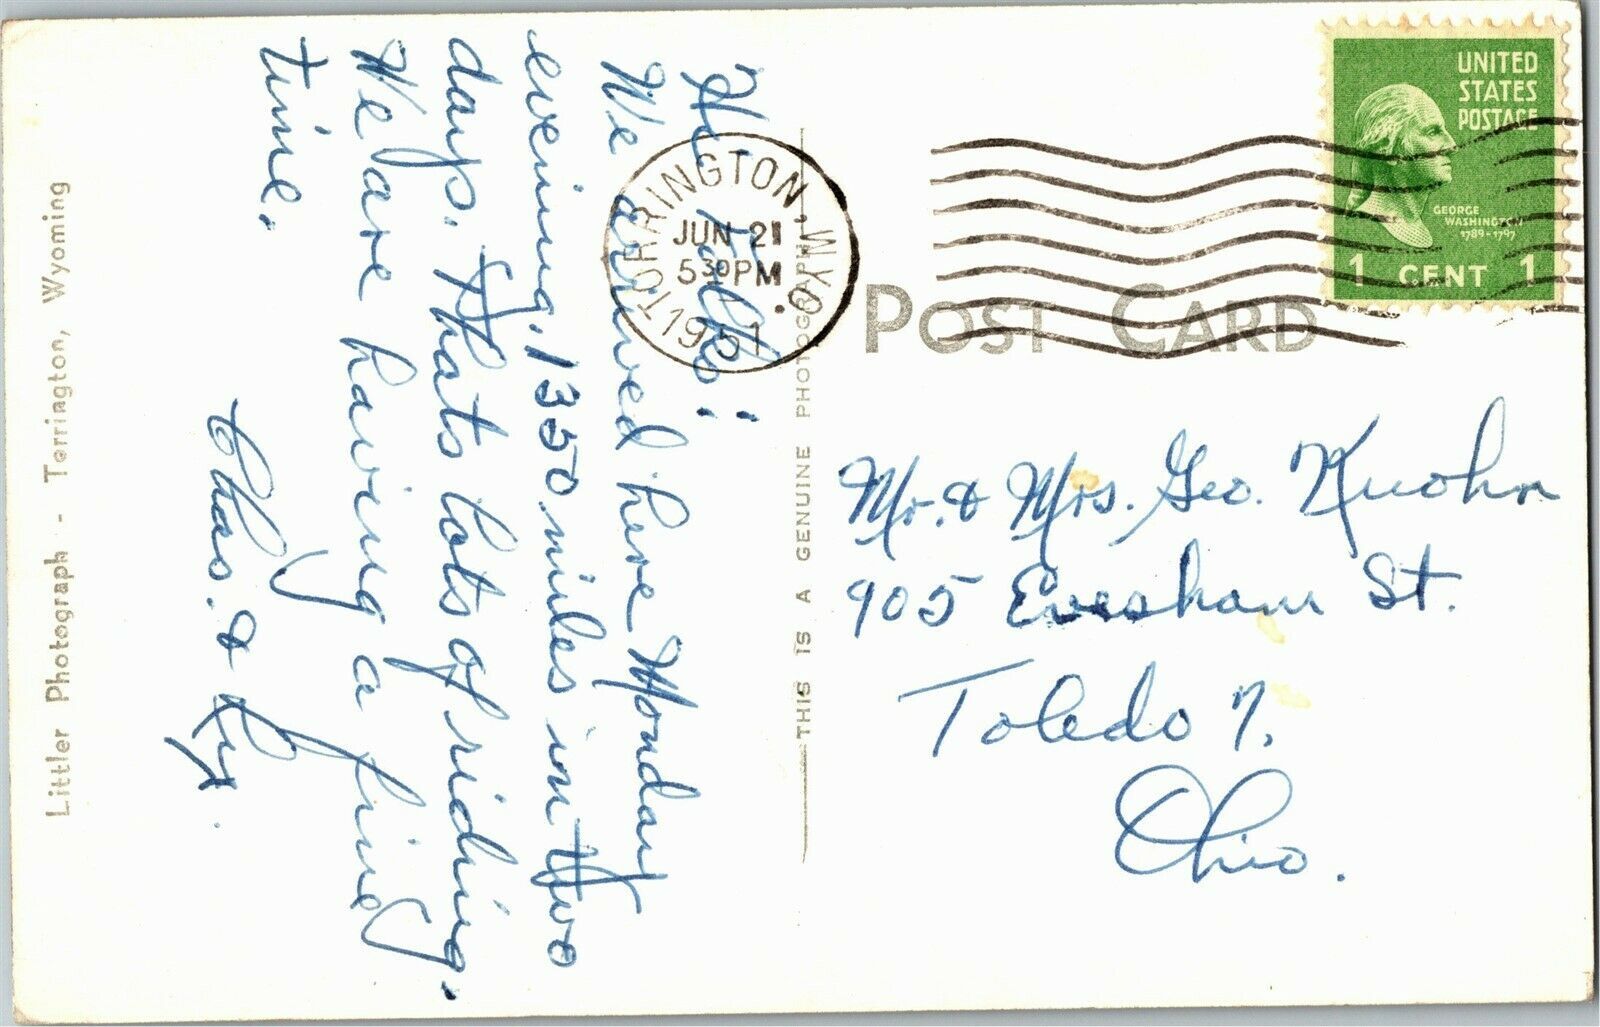 Hi Folks:
We arrived here Monday
evening, 1350 miles in two
days. Thats lots of riding.
We are having a fine
time.
Chas. &
Littler Photograph - Torrington, Wyoming
THIS IS A GENUINE PHOTOGRAPH
TORRINGTON, WYO.
JUN 21
5 30 PM
1951
UNITED
STATES
POSTAGE
GEORGE
WASHINGTON
1789-1797
1 CENT 1
POST CARD
Mr. & Mrs. Geo. Kuohn
905 Evesham St.
Toledo 7.
Ohio.